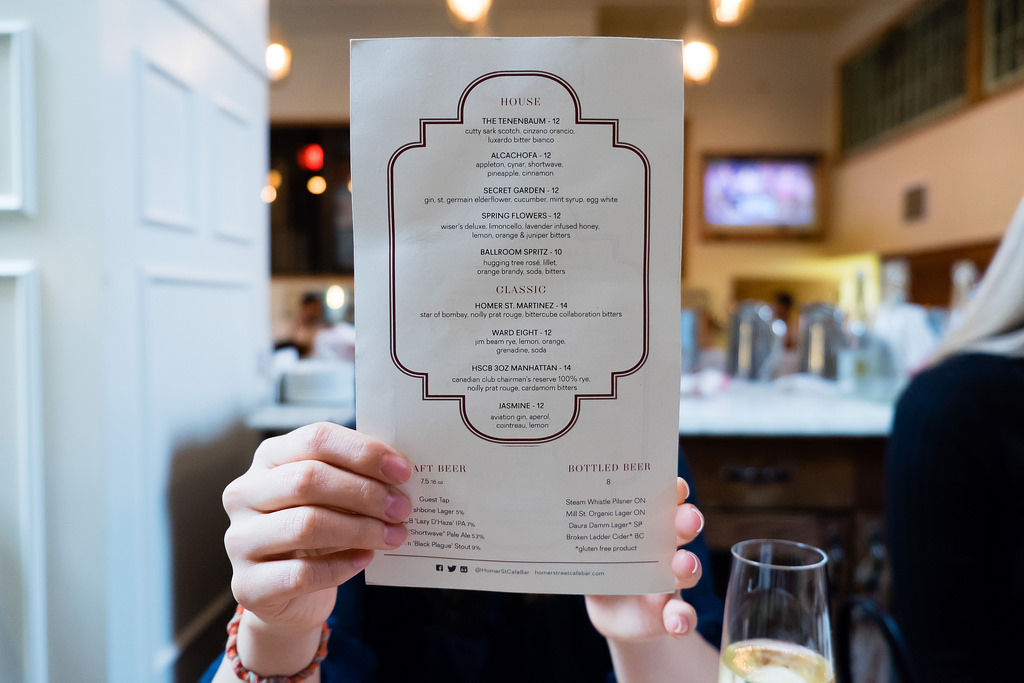 HOUSE
THE TENENBAUM - 12
cutty sark scotch, cinzano orancio,
luxardo bitter bianco
ALCACHOFA - 12
appleton, cynar, shortwave,
pineapple, cinnamon
SECRET GARDEN - 12
gin, st. germain elderflower, cucumber, mint syrup, egg white
SPRING FLOWERS - 12
wiser's deluxe, limoncello, lavender infused honey,
lemon, orange & juniper bitters
BALLROOM SPRITZ - 10
hugging tree rosé, lillet,
orange brandy, soda, bitters
CLASSIC
HOMER ST. MARTINEZ - 14
star of bombay, noilly prat rouge, bittercube collaboration bitters
WARD EIGHT - 12
jim beam rye, lemon, orange,
grenadine, soda
HSCB 3OZ MANHATTAN - 14
canadian club chairman's reserve 100% rye,
noilly prat rouge, cardamom bitters
JASMINE - 12
aviation gin, aperol,
cointreau, lemon
AFT BEER
7.5 16 oz
Guest Tap
shbone Lager 5%
B 'Lazy D'Haze' IPA 7%
'Shortwave' Pale Ale 5.2%
'Black Plague' Stout 9%
BOTTLED BEER
8
Steam Whistle Pilsner ON
Mill St. Organic Lager ON
Daura Damm Lager* SP
Broken Ladder Cider* BC
*gluten free product
@HomerStCafeBar homerstreetcafebar.com